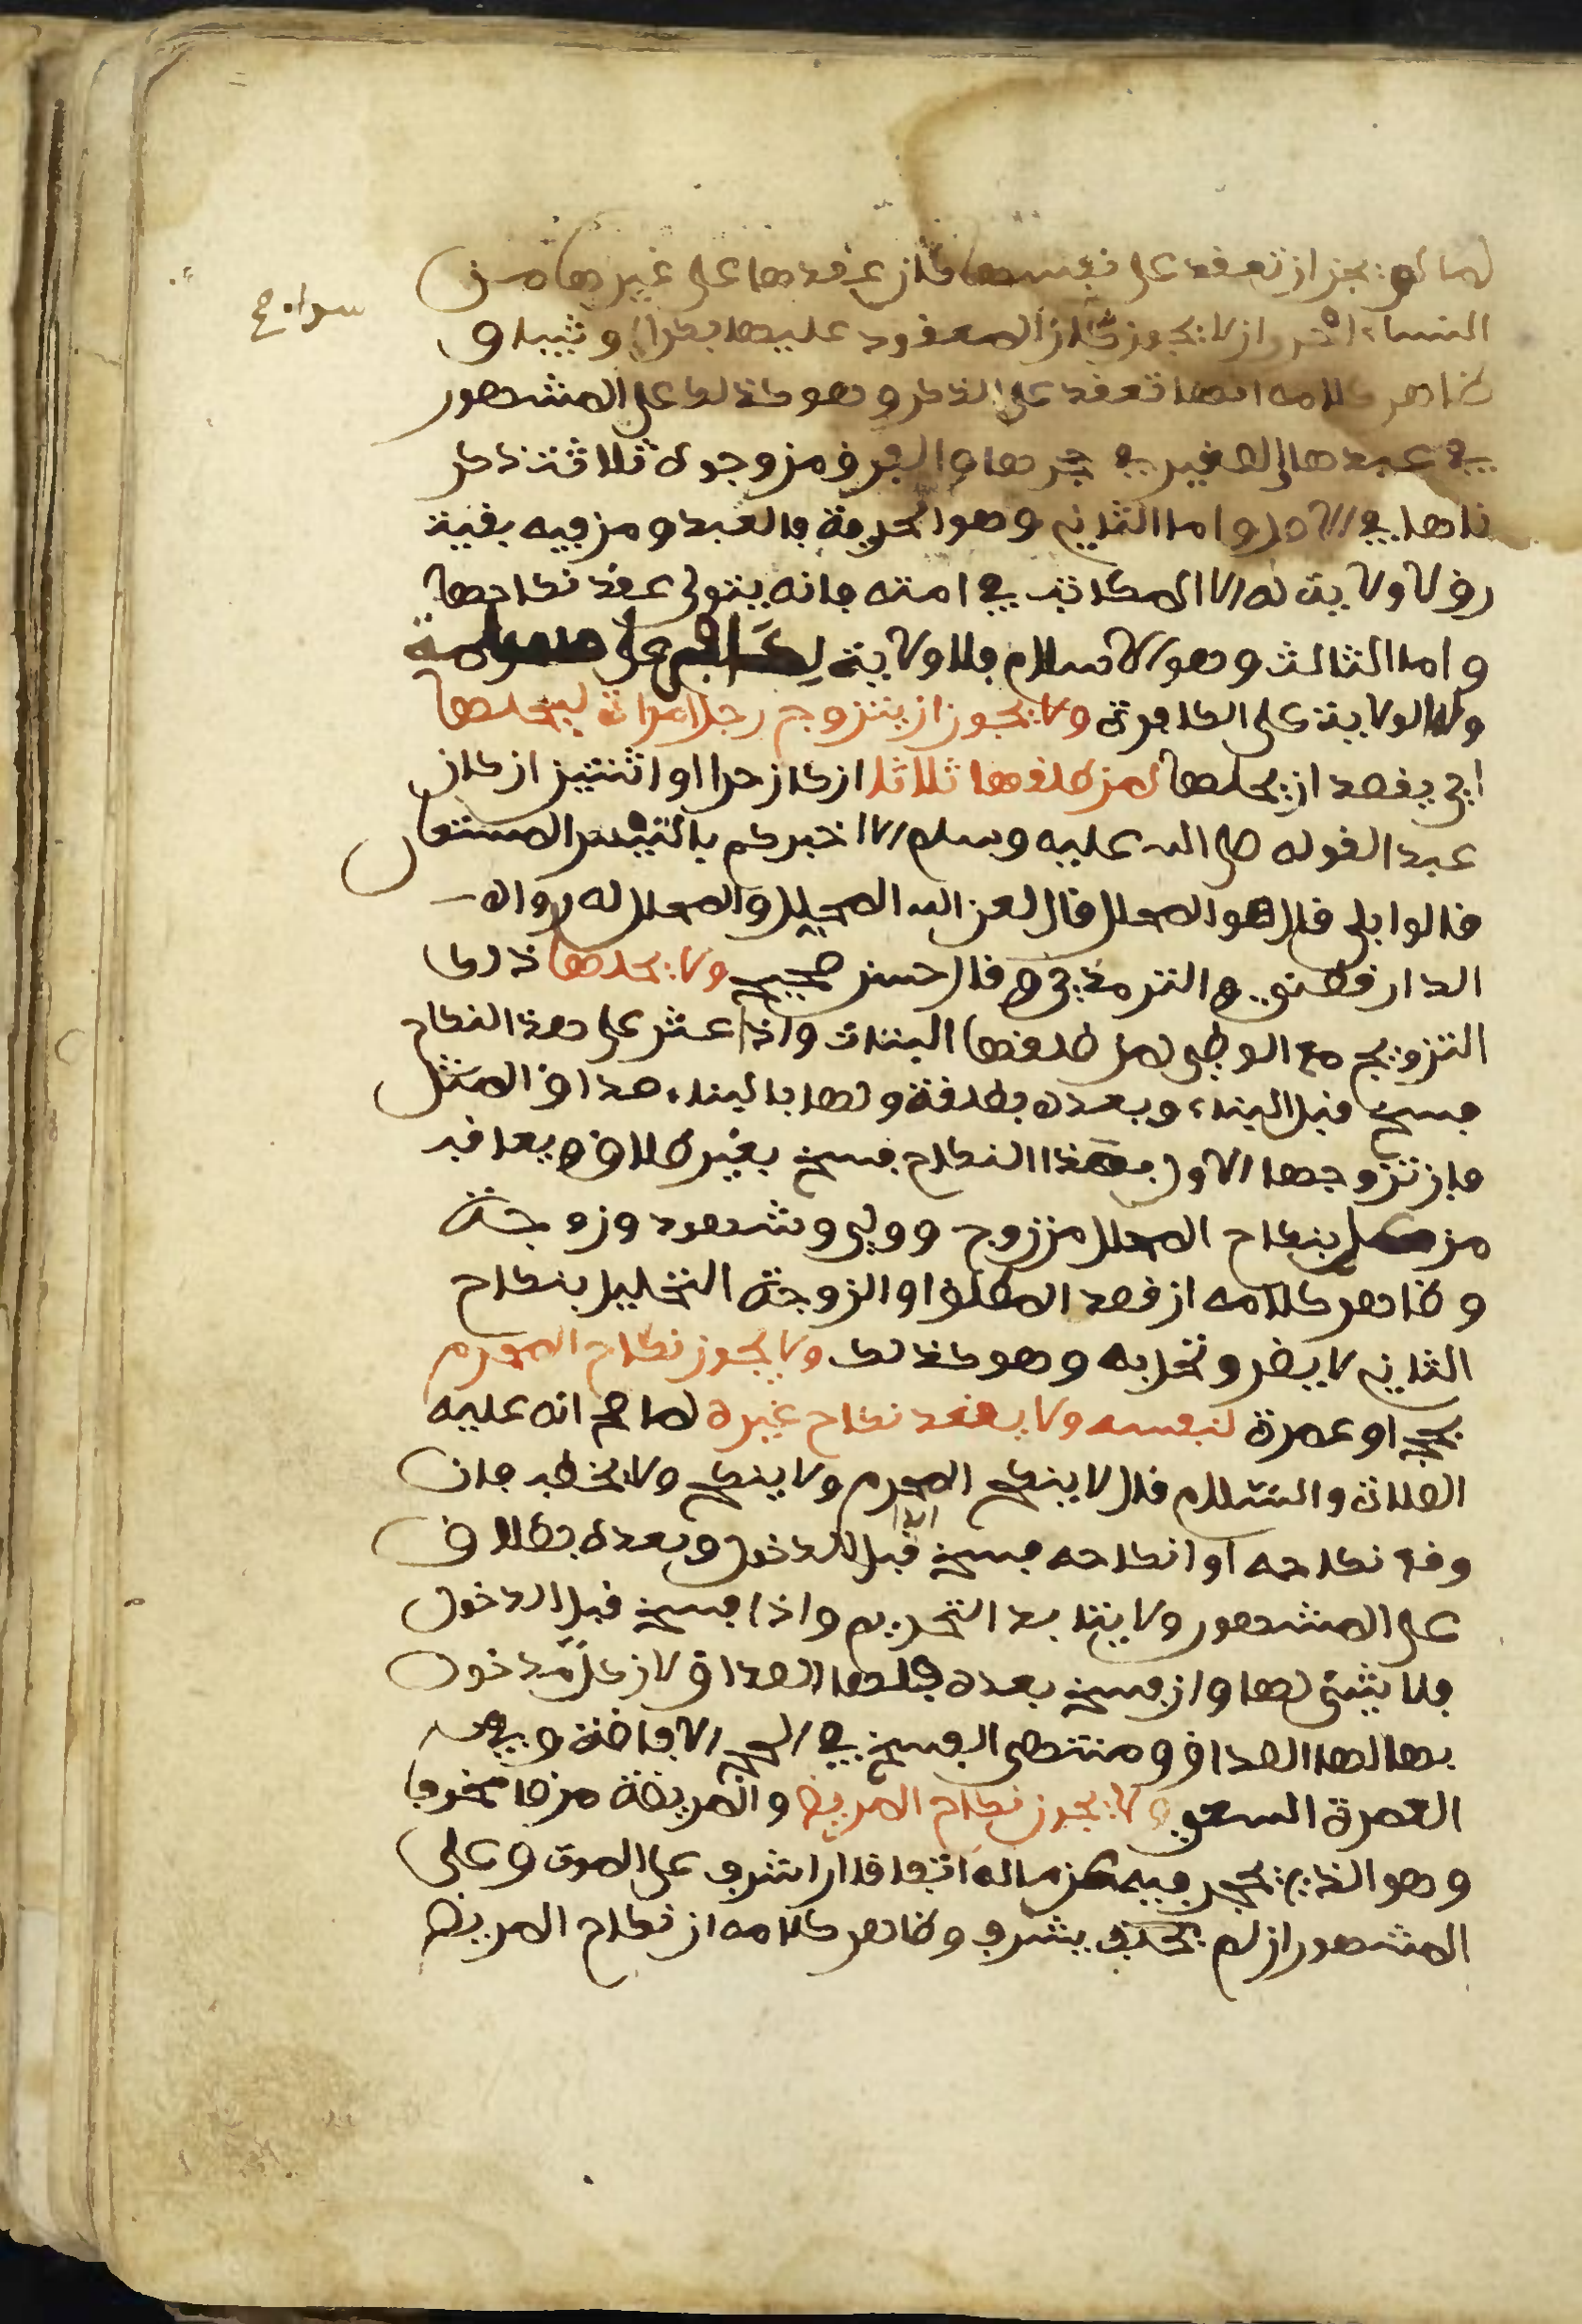 لما لم يجز ان تعقد على نفسها كان عقدها على غيرها من
النساء احرى ان لا يجوز كان المعقود عليها بكرا او ثيبا و
ظاهر كلامه انها تعقد على الذكر وهو كذلك على المشهور
في عبدها والصغير في حجرها والفرق من وجوه ثلاثة ذكر
ناها في الاصل واما الثاني وهو الحرية فالعبد ومن فيه بقية
رق لا ولاية له الا المكاتب في امته فانه يتولى عقد نكاحها
واما الثالث وهو الاسلام فلا ولاية لكافر على مسلمة
وله الولاية على الكافرة ولا يجوز ان يتزوج رجل امراة ليحلها
اي يقصد ان يحلها لمن طلقها ثلاثا ان كان حرا او اثنتين ان كان
عبدا لقوله صلى الله عليه وسلم الا اخبركم بالتيس المستعار
قالوا بلى قال هو المحلل قال لعن الله المحلل والمحلل له رواه
الدارقطني والترمذي وقال حسن صحيح ولا يحلها ذلك
التزويج مع الوطي لمن طلقها البتات واذا عثر على هذا النكاح
فسخ قبل البناء وبعده بطلقة ولها بالبناء صداق المثل
فان تزوجها الاول بهذا النكاح فسخ بغير طلاق ويعاقب
من عمل بنكاح المحلل من زوج وولي وشهود وزوجة
وظاهر كلامه ان قصد المطلق او الزوجة التحليل بنكاح
الثاني لا يضر وتحل به وهو كذلك ولا يجوز نكاح المحرم
بحج او عمرة لنفسه ولا يعقد نكاح غيره لما صح انه عليه
الصلاة والسلام قال لا ينكح المحرم ولا ينكح ولا يخطب فان
وقع نكاحه او انكاحه فسخ ابدا قبل الدخول وبعده بطلاق
على المشهور ولا يتابد التحريم واذا فسخ قبل الدخول
فلا شيء لها وان فسخ بعده فلها الصداق لان كل مدخول
بها لها الصداق ومنتهى الفسخ في الحج الافاضة وفي
العمرة السعي ولا يجوز نكاح المريض والمريضة مرضا مخوفا
وهو الذي يحجر فيه عن ماله اتفاقا ان اشرف على الموت وعلى
المشهور ان لم يشرف وظاهر كلامه ان نكاح المريض